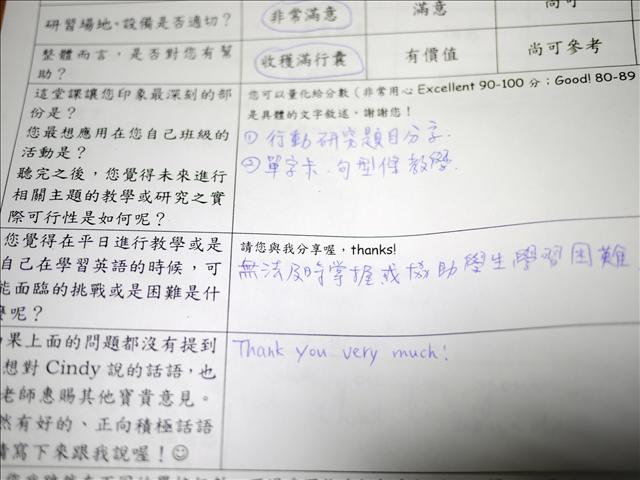 研習場地、設備是否適切？
非常滿意
滿意
尚可
整體而言，是否對您有幫
助？
收穫滿行囊
有價值
尚可參考
這堂課讓您印象最深刻的部
份是？
您最想應用在您自己班級的
活動是？
聽完之後，您覺得未來進行
相關主題的教學或研究之實
際可行性是如何呢？
您可以量化給分數（非常用心 Excellent 90-100 分；Good! 80-89
是具體的文字敘述，謝謝您！
① 行動研究題目分享.
② 單字卡、句型條教學.
您覺得在平日進行教學或是
自己在學習英語的時候，可
能面臨的挑戰或是困難是什
麼呢？
請您與我分享喔，thanks!
無法及時掌握或協助學生學習困難
果上面的問題都沒有提到
想對 Cindy 說的話語，也
老師惠賜其他寶貴意見。
然有好的、正向積極話語
請寫下來跟我說喔！☺
Thank you very much!